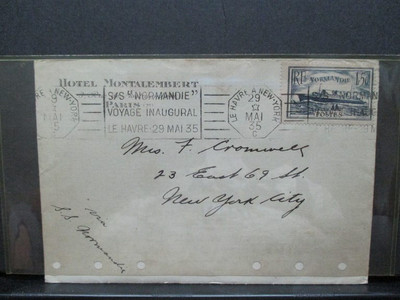 HOTEL MONTALEMBERT
PARIS
LE HAVRE A NEW-YORK
MAI
S/S "NORMANDIE"
VOYAGE INAUGURAL
LE HAVRE-29 MAI 35
LE HAVRE A NEW-YORK
29
MAI
35
NORMANDIE
1F50
POSTES
Mrs. F. Cromwell
23 East 69 St.
New York City
via
S.S Normandie